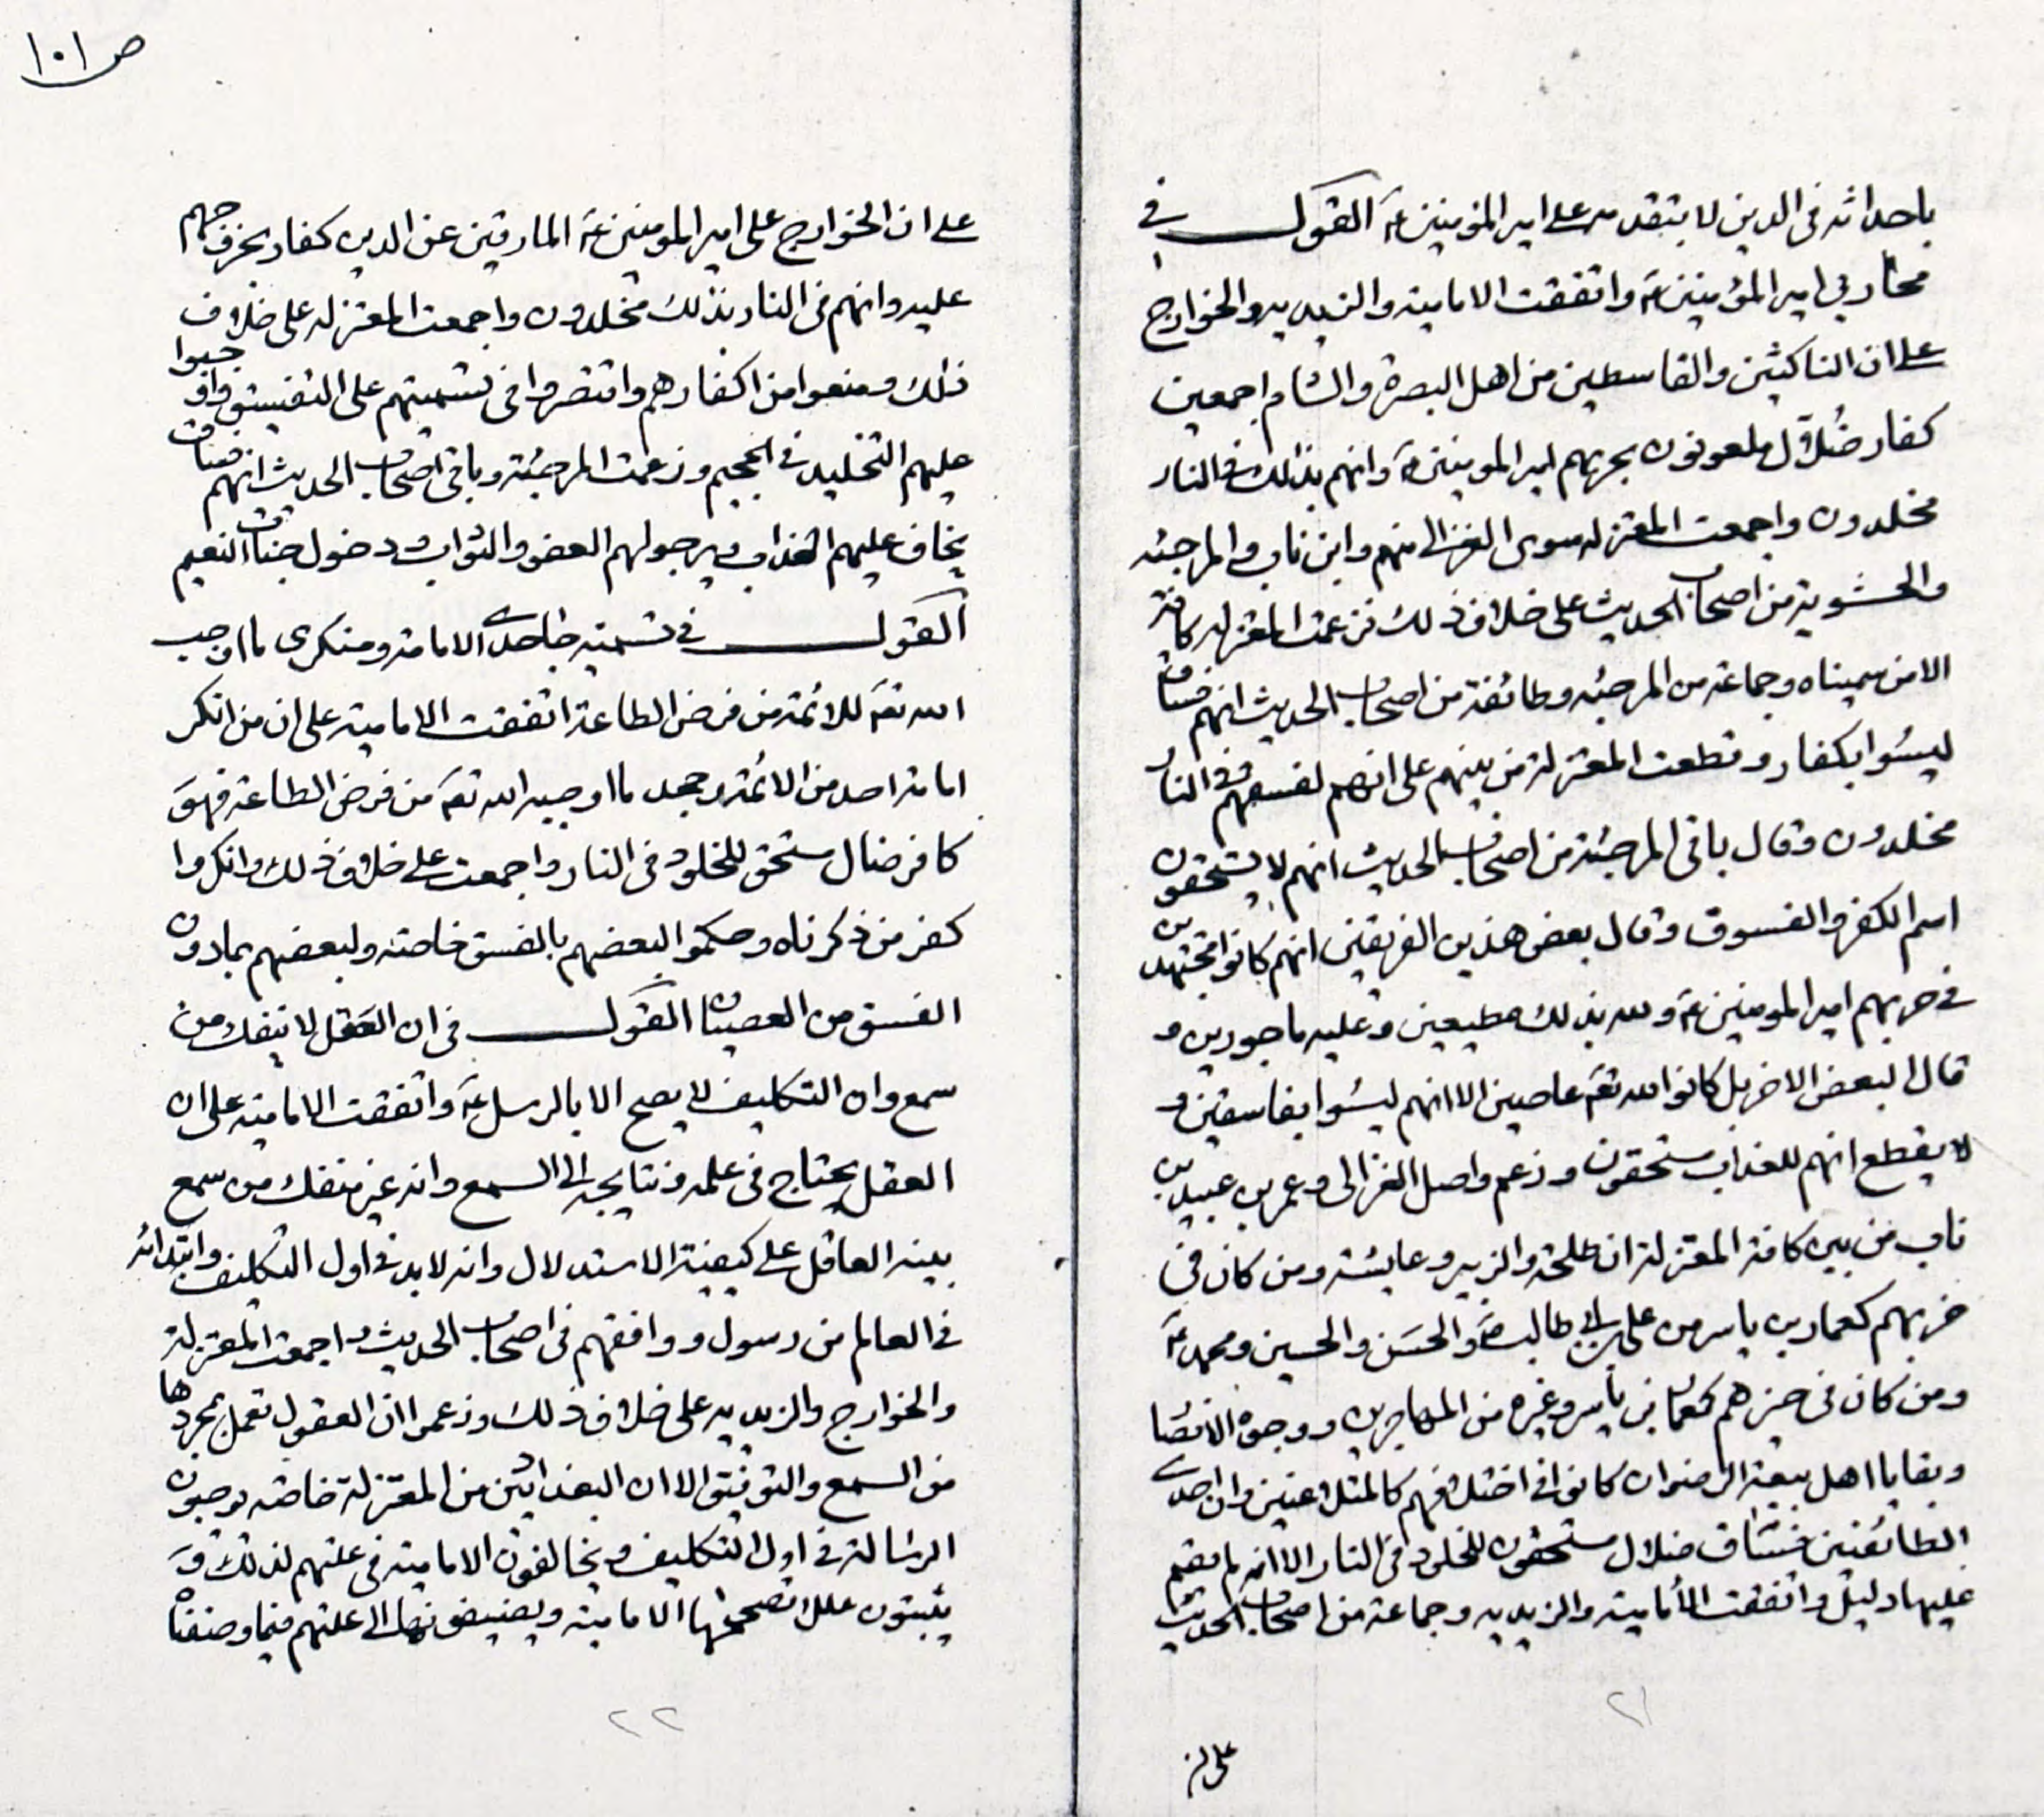 باحداثه فى الدين لا بتقدمه على امير المؤمنين عَ القول فى
محاربي امير المؤمنين عَ واتفقت الامامية والزيديه والخوارج
على ان الناكثين والقاسطين من اهل البصرة والشام اجمعين
كفار ضُلّال ملعونون بحربهم امير المومنين عَ وانهم بذلك فى النار
مخلدون واجمعت المعتزله سوى الغزالى منهم وابن ناب والمرجئه
والحشوية من اصحاب الحديث على خلاف ذلك فزعمت المعتزله كافة
الا من سميناه وجماعة من المرجئه وطائفة من اصحاب الحديث انهم فساق
ليسُوا بكفار وقطعت المعتزلة من بينهم على انهم لفسقهم فى النار
مخلدون وقال باقى المرجئة من اصحاب الحديث انهم لا يستحقون
اسم الكفر والفسوق وقال بعض هذين الفريقين انهم كانوا مجتهدين
فى حربهم امير المومنين عَ ولله بذلك مطيعين وعليه ماجورين و
قال البعض الاخر بل كانوا لله تعَ عاصين الا انهم ليسُوا بفاسقين و
لا يقطع انهم للعذاب مستحقون وزعم واصل الغزالى وعمر بن عبيد بن
ناب من بين كافة المعتزلة ان طلحة والزبير وعايشة ومن كان فى
حربهم كعمار بن ياسر من على بن ابى طالب عَ والحسَن والحسين ومحمد عَ
ومن كان فى حيزهم كعمار بن ياسر وغيره من المهاجرين ووجوه الانصَار
وبقايا اهل بيعة الرضوان كانوا فى اختلافهم كالمتلاعنين وان احدى
الطائفتين فسّاق ضلال مستحقون للخلود فى النار الا انه لم يقم
عليها دليل واتفقت الامامية والزيديه وجماعة من اصحاب الحديث
٢١
على ان
ص ١٠١
على ان الخوارج على امير المومنين عَ المارقين عن الدين كفار بخروجهم
عليه وانهم فى النار بذلك مخلدون واجمعت المعتزله على خلاف
ذلك ومنعوا من اكفارهم واقتصروا فى تسميتهم على التفسيق واوجبوا
عليهم التخليد فى الجحيم وزعمت المرجئة وباقى اصحاب الحديث انهم فساق
يخاف عليهم العذاب ويرجولهم العفو والثواب ودخول جنات النعيم
القول فى تسمية جاحدى الامامة ومنكرى ما اوجب
الله تعَ للائمة من فرض الطاعة اتفقت الامامية على ان من انكر
امامة احد من الائمة وجحد ما اوجبه الله تعَ من فرض الطاعة فهوَ
كافر ضال مستحق للخلود فى النار واجمعت على خلاف ذلك وانكروا
كفر من ذكرناه وحكموا لبعضهم بالفسق خاصة ولبعضهم بمادون
الفسق من العصيان القول فى ان العقل لا ينفك من
سمع وان التكليف لا يصح الا بالرسل عَ واتفقت الامامية على ان
العقل يحتاج فى علمه ونتايجه الى السمع وانه غير منفك من سمع
بينه العاقل على كيفية الاستدلال وانه لابد فى اول التكليف وابتدائه
فى العالم من رسول ووافقهم فى اصحاب الحديث واجمعت المعتزلة
والخوارج والزيديه على خلاف ذلك وزعموا ان العقول تعمل بمجردها
من السمع والتوفيق الا ان البغداديين من المعتزلة خاصة يوجبون
الرسَالة فى اول التكليف ويخالفون الامامية فى علتهم لذلك وَ
يثبتون عللا تصححها الامامية ويضيفونها الى علتهم فيما وصفناه
٢٢